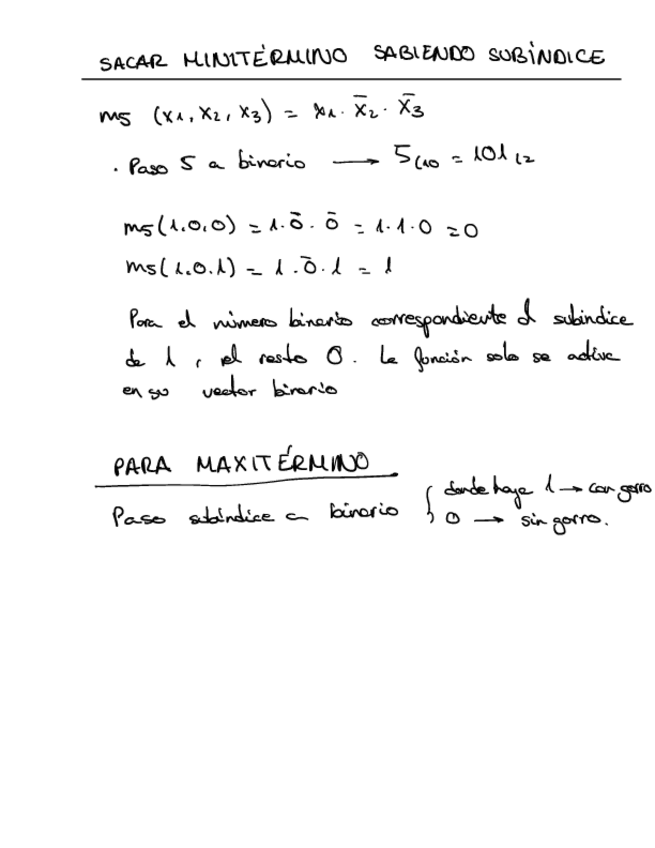 SACAR MINITÉRMINO SABIENDO SUBÍNDICE
m5 (x1, x2, x3) = x1 · x̄2 · x̄3
· Paso 5 a binario → 5(10 = 101(2
m5(1.0.0) = 1.0̄. 0̄ = 1.1.0 = 0
m5(1.0.1) = 1.0̄.1 = 1
Para el número binario correspondiente al subíndice
da 1, el resto 0. La función solo se activa
en su vector binario
PARA MAXITÉRMINO
Paso subíndice a binario { donde haya 1 → con gorro
0 → sin gorro.